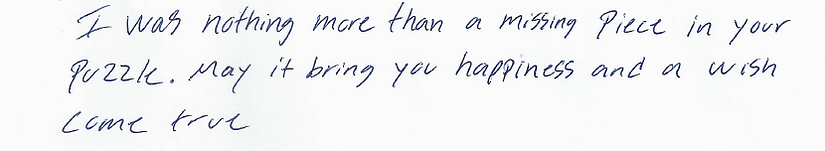 I was nothing more than a missing piece in your
puzzle. May it bring you happiness and a wish
come true